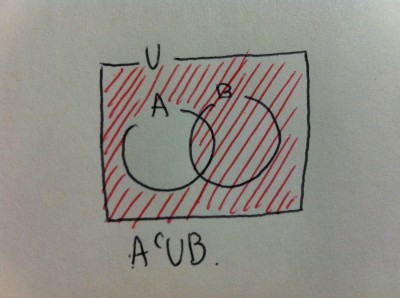 U
A B
AᶜUB.